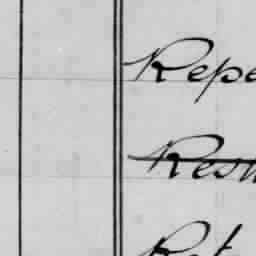 Repe
Resu
Ret